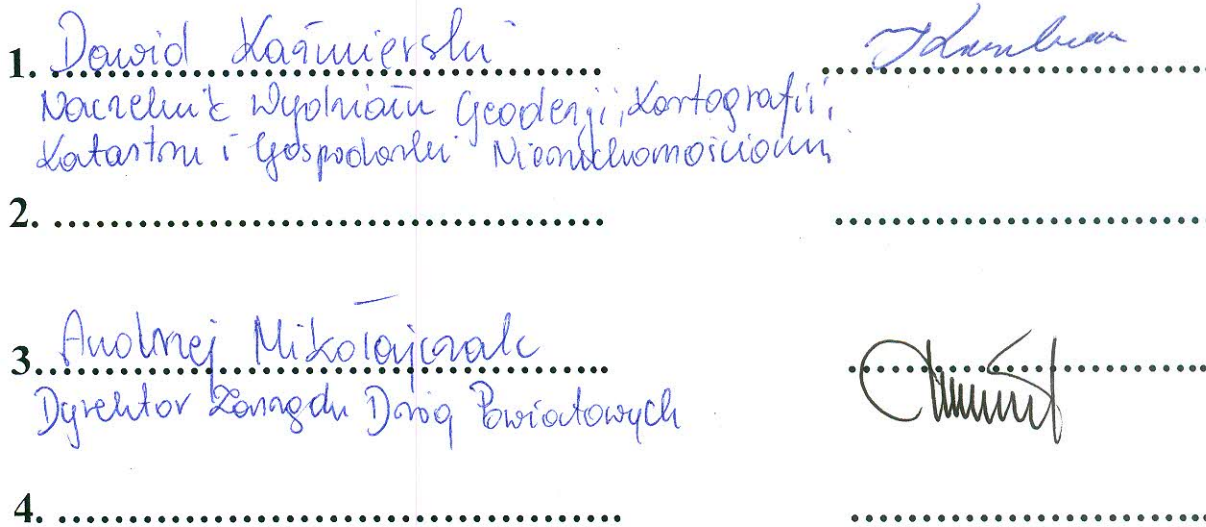 1. Dawid Kaźmierski
Naczelnik Wydziału Geodezji, Kartografii,
Katastru i Gospodarki Nieruchomościami
2.
3. Andrzej Mikołajczak
Dyrektor Zarządu Dróg Powiatowych
4.